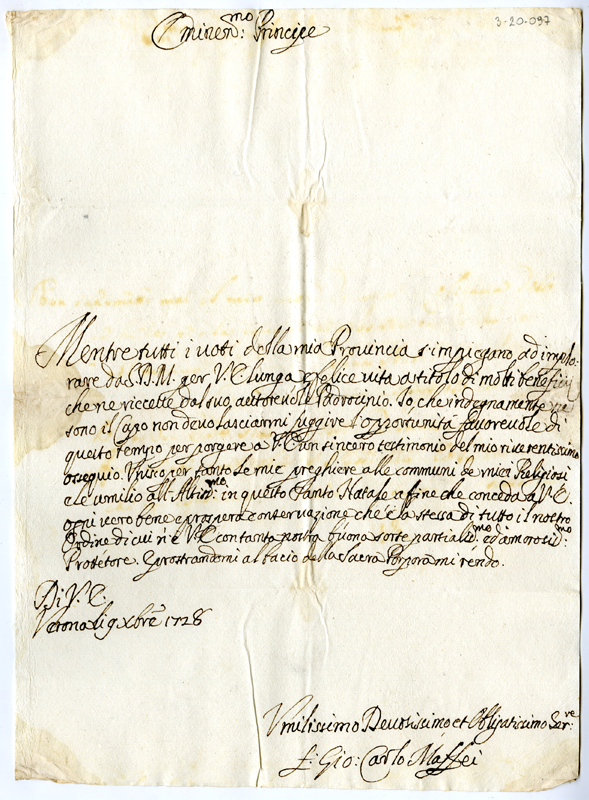 3-20-097
Eminen:mo Principe
Mentre tutti i voti della mia Provincia s'impiegano ad implo-
rare da S.D.M. per V.E. lunga e felice vita a titolo di molti beneficij
che ne riccette dal suo auttorevole Padrocinio. Io, che indegnamente ne
sono il Capo non devo lasciarmi fuggire l'opportunità favorevole di
questo tempo per porgere a V.E. un sincero testimonio del mio riverentissimo
ossequio. Unisco per tanto le mie preghiere alle communi de miei Religiosi
e le umilio all'Altiss:mo in questo Santo Natale a fine che conceda a V.E.
ogni vero bene e prospera conservatione che è la stessa di tutto il nostro
Ordine di cui n'è V.E. con tanta nostra buona sorte partialis:mo ed amorosis:mo
Protetore. E prostrandomi al bacio della Sacra Porpora mi rendo.
Di V.E.
Verona li 9 Xbre 1728
Vmilissimo Devotissimo et Obligatissimo Ser:re
f: Gio: Carlo Maffei